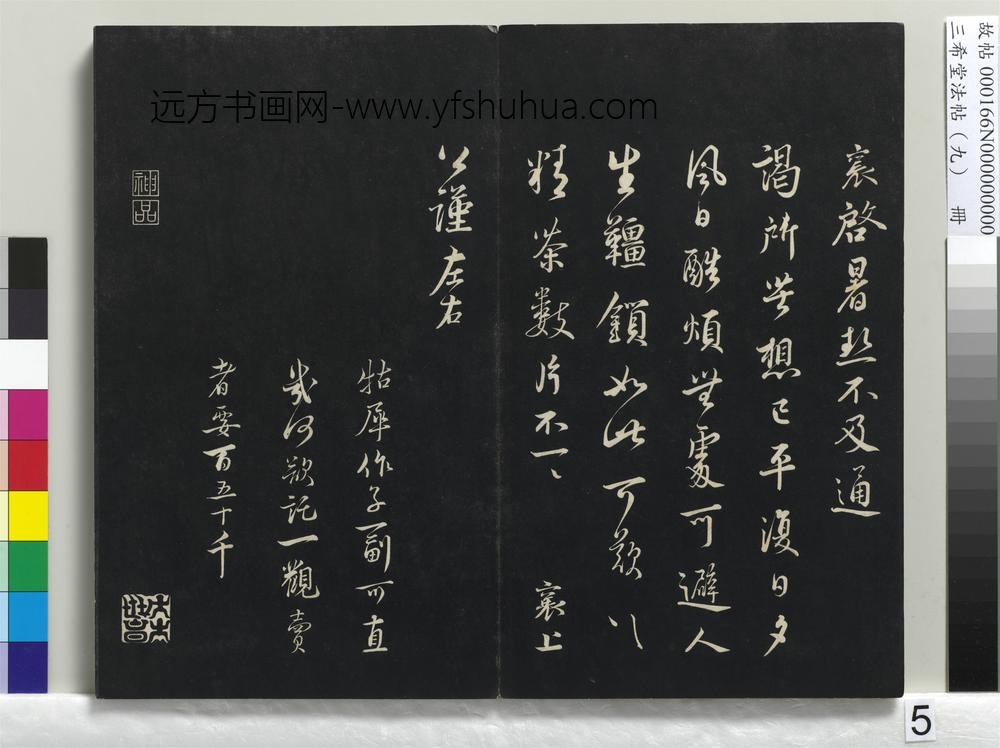 襄啓暑熱不及通
謁所苦想已平復日夕
風日酷煩無處可避人
生韁鎖如此可歎可歎
精茶數片不一一 襄上
公謹左右
牯犀作子一副可直
幾何欲託一觀賣
者要百五十千
神品
远方书画网-www.yfshuhua.com
故帖 000166N000000000
三希堂法帖（九） 冊
5